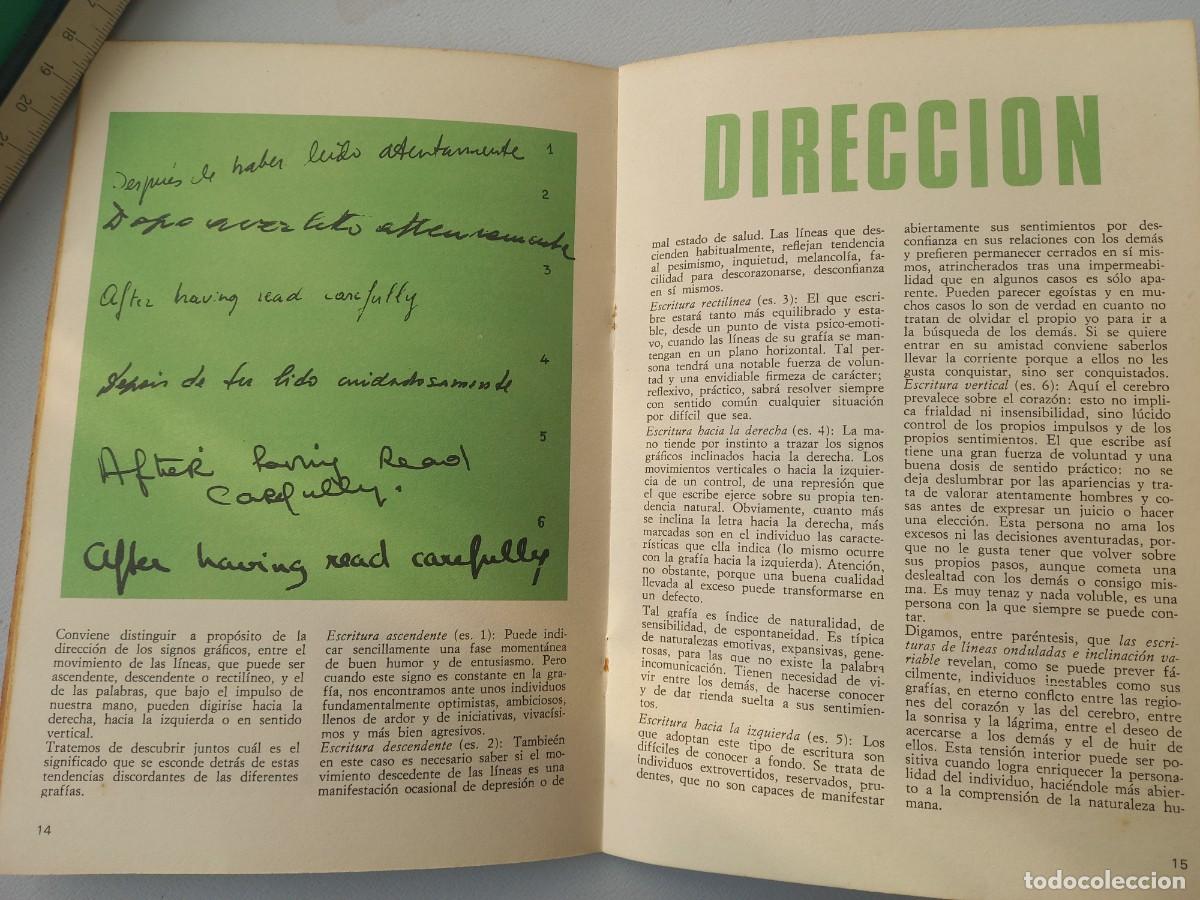 18
19
20
21
Después de haber leido atentamente 1
2
Dopo aver letto attentamente
3
After having read carefully
4
Depois de ter lido cuidadosamente
5
After having read
carefully.
6
After having read carefully
Conviene distinguir a propósito de la
dirección de los signos gráficos, entre el
movimiento de las líneas, que puede ser
ascendente, descendente o rectilíneo, y el
de las palabras, que bajo el impulso de
nuestra mano, pueden digirise hacia la
derecha, hacia la izquierda o en sentido
vertical.
Tratemos de descubrir juntos cuál es el
significado que se esconde detrás de estas
tendencias discordantes de las diferentes
grafías.
14
Escritura ascendente (es. 1): Puede indi-
car sencillamente una fase momentánea
de buen humor y de entusiasmo. Pero
cuando este signo es constante en la gra-
fía, nos encontramos ante unos individuos
fundamentalmente optimistas, ambiciosos,
llenos de ardor y de iniciativas, vivacísi-
mos y más bien agresivos.
Escritura descendente (es. 2): Tambieén
en este caso es necesario saber si el mo-
vimiento descedente de las líneas es una
manifestación ocasional de depresión o de
DIRECCION
mal estado de salud. Las líneas que des-
cienden habitualmente, reflejan tendencia
al pesimismo, inquietud, melancolía, fa-
cilidad para descorazonarse, desconfianza
en sí mismos.
Escritura rectilínea (es. 3): El que escri-
bre estará tanto más equilibrado y esta-
ble, desde un punto de vista psico-emoti-
vo, cuando las líneas de su grafía se man-
tengan en un plano horizontal. Tal per-
sona tendrá una notable fuerza de volun-
tad y una envidiable firmeza de carácter;
reflexivo, práctico, sabrá resolver siempre
con sentido común cualquier situación
por difícil que sea.
Escritura hacia la derecha (es. 4): La ma-
no tiende por instinto a trazar los signos
gráficos inclinados hacia la derecha. Los
movimientos verticales o hacia la izquier-
da son de un control, de una represión que
el que escribe ejerce sobre su propia ten-
dencia natural. Obviamente, cuanto más
se inclina la letra hacia la derecha, más
marcadas son en el individuo las caracte-
rísticas que ella indica (lo mismo ocurre
con la grafía hacia la izquierda). Atención,
no obstante, porque una buena cualidad
llevada al exceso puede transformarse en
un defecto.
Tal grafía es índice de naturalidad, de
sensibilidad, de espontaneidad. Es típica
de naturalezas emotivas, expansivas, gene-
rosas, para las que no existe la palabra
incomunicación. Tienen necesidad de vi-
vir entre los demás, de hacerse conocer
y de dar rienda suelta a sus sentimien-
tos.
Escritura hacia la izquierda (es. 5): Los
que adoptan este tipo de escritura son
difíciles de conocer a fondo. Se trata de
individuos extrovertidos, reservados, pru-
dentes, que no son capaces de manifestar
abiertamente sus sentimientos por des-
confianza en sus relaciones con los demás
y prefieren permanecer cerrados en sí mis-
mos, atrincherados tras una impermeabi-
lidad que en algunos casos es sólo apa-
rente. Pueden parecer egoístas y en mu-
chos casos lo son de verdad en cuanto no
tratan de olvidar el propio yo para ir a
la búsqueda de los demás. Si se quiere
entrar en su amistad conviene saberlos
llevar la corriente porque a ellos no les
gusta conquistar, sino ser conquistados.
Escritura vertical (es. 6): Aquí el cerebro
prevalece sobre el corazón: esto no impli-
ca frialdad ni insensibilidad, sino lúcido
control de los propios impulsos y de los
propios sentimientos. El que escribe así
tiene una gran fuerza de voluntad y una
buena dosis de sentido práctico: no se
deja deslumbrar por las apariencias y tra-
ta de valorar atentamente hombres y co-
sas antes de expresar un juicio o hacer
una elección. Esta persona no ama los
excesos ni las decisiones aventuradas, por-
que no le gusta tener que volver sobre
sus propios pasos, aunque cometa una
deslealtad con los demás o consigo mis-
ma. Es muy tenaz y nada voluble, es una
persona con la que siempre se puede con-
tar.
Digamos, entre paréntesis, que las escri-
turas de líneas onduladas e inclinación va-
riable revelan, como se puede prever fá-
cilmente, individuos inestables como sus
grafías, en eterno conflicto entre las regio-
nes del corazón y las del cerebro, entre
la sonrisa y la lágrima, entre el deseo de
acercarse a los demás y el de huir de
ellos. Esta tensión interior puede ser po-
sitiva cuando logra enriquecer la persona-
lidad del individuo, haciéndole más abier-
to a la comprensión de la naturaleza hu-
mana.
15
todocoleccion